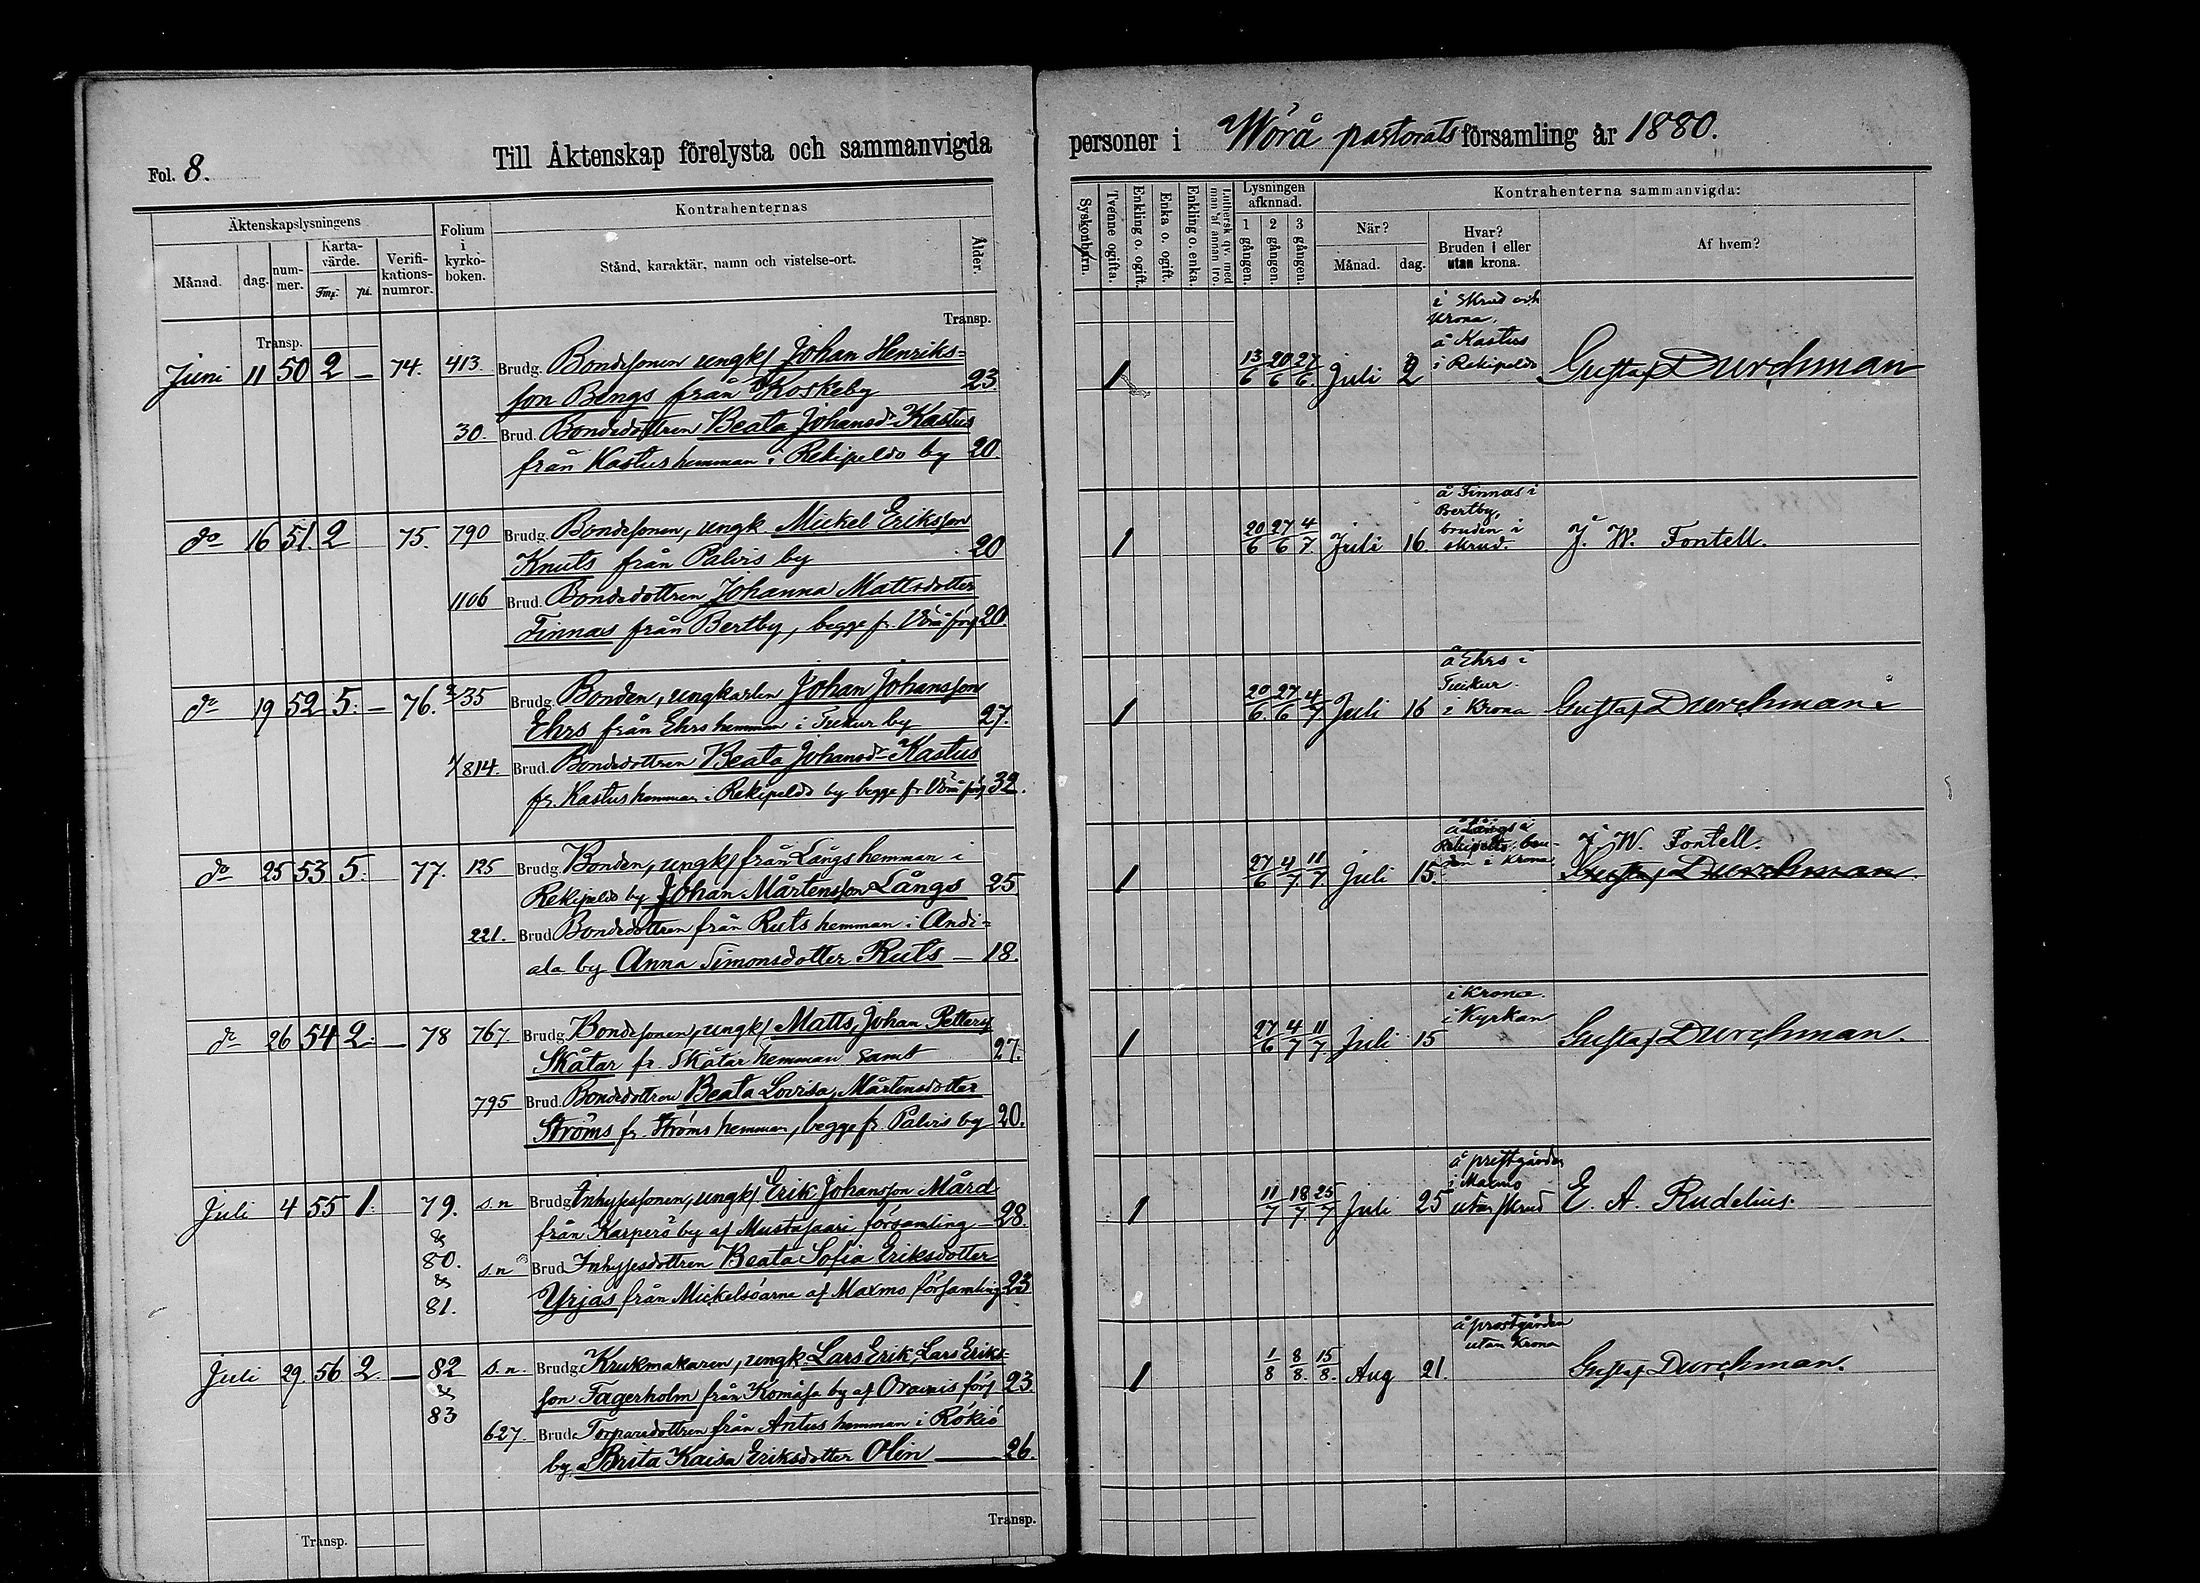 Fol. 8. Till Äktenskap förelysta och sammanvigda
personer i Wörå pastorats församling år 1880.
Äktenskapslysningens
Månad. dag. num-mer. Karta-värde. Fmk. pi. Verifi-kations-numror.
Folium i kyrko-boken.
Kontrahenternas
Stånd, karaktär, namn och vistelse-ort.
Ålder.
Transp.
Transp.
Juni 11 50 2 — 74. 413. Brudg. Bondesonen ungk. Johan Henriks=
son Bengs från Koskeby 23
30. Brud. Bondedottren Beata Johansdr Kastus
från Kastus hemman i Rekipeldo by 20.
do 16 51. 2 75. 790 Brudg. Bondesonen, ungk. Mickel Eriksson
Knuts från Palvis by 20
1106 Brud. Bondedottren Johanna Mattsdotter
Finnas från Bertby, begge fr. Vörå förs 20.
do 19 52 5. — 76. 35 Brudg. Bonden, ungkarlen Johan Johansson
Ehrs från Ehrs hemman i Tuckur by 27.
814. Brud. Bondedottren Beata Johansdr Kastus
fr. Kastus hemman i Rekipeldo by begge fr Vörå förs 32.
do 25 53 5. 77. 125 Brudg. Bonden, ungk. från Långs hemman i
Rekipeldo by Johan Mårtensson Långs 25
221. Brud Bondedottren från Ruts hemman i Andi=
ala by Anna Simonsdotter Ruts — 18.
do 26 54 2. — 78 767. Brudg. Bondesonen, ungk. Matts, Johan Petters
Skåtar fr. Skåtar hemman samt 27.
795 Brud. Bondedottren Beata Lovisa, Mårtensdotter
Ströms fr. Ströms hemman, begge fr. Palvis by 20.
Juli 4 55 1. 79. s.n Brudg. Inhysessonen, ungk. Erik Johansson Mård
från Karperö by af Mustasaari församling — 28.
&
80. s.n Brud Inhysesdottren Beata Sofia Eriksdotter
&
81. Yrjas från Mickelsöarne af Maxmo församling 23
Juli 29 56 2. — 82 s.n. Brudg. Krukmakaren, ungk. Lars Erik, Lars Eriks=
& son Fagerholm från Komåsa by af Oravais förs 23
83
627. Brud. Torparedottren från Antus hemman i Rökiö
by Brita Kaisa Eriksdotter Olin — 26.
Transp.
Transp.
Syskonbarn.
Tvenne ogifta.
Enkling o. ogift.
Enka o. ogift.
Enkling o. enka.
Luthersk qv. med man af annan tro.
Lysningen afknnad.
1 gången. 2 gången. 3 gången.
Kontrahenterna sammanvigda:
När? Månad. dag.
Hvar? Bruden i eller utan krona.
Af hvem?
i Skrud och
Krona,
å Kastus
i Rekipeldo
1 13/6 20/6 27/6. Juli 2 Gustaf Durchman
å Finnas i
Bertby,
bruden i
skrud.
1 20/6 27/6 4/7 Juli 16. J. W. Fontell.
å Ehrs i
Tuckur.
i Krona
1 20/6. 27/6 4/7 Juli 16 Gustaf Durchman
å Långs i
Rekipeldo, bru-
den i Krona
J. W. Fontell.
1 27/6 4/7 11/7 Juli 15. Gustaf Durchman.
i Krona.
i Kyrkan
1 27/6 4/7 11/7 Juli 15 Gustaf Durchman.
å prestgården
i Maxmo
utan skrud
1 11/7 18/7. 25/7 Juli 25 E. A. Rudelius.
å prostgården
utan Krona
1 1/8 8/8. 15/8. Aug 21. Gustaf Durchman.